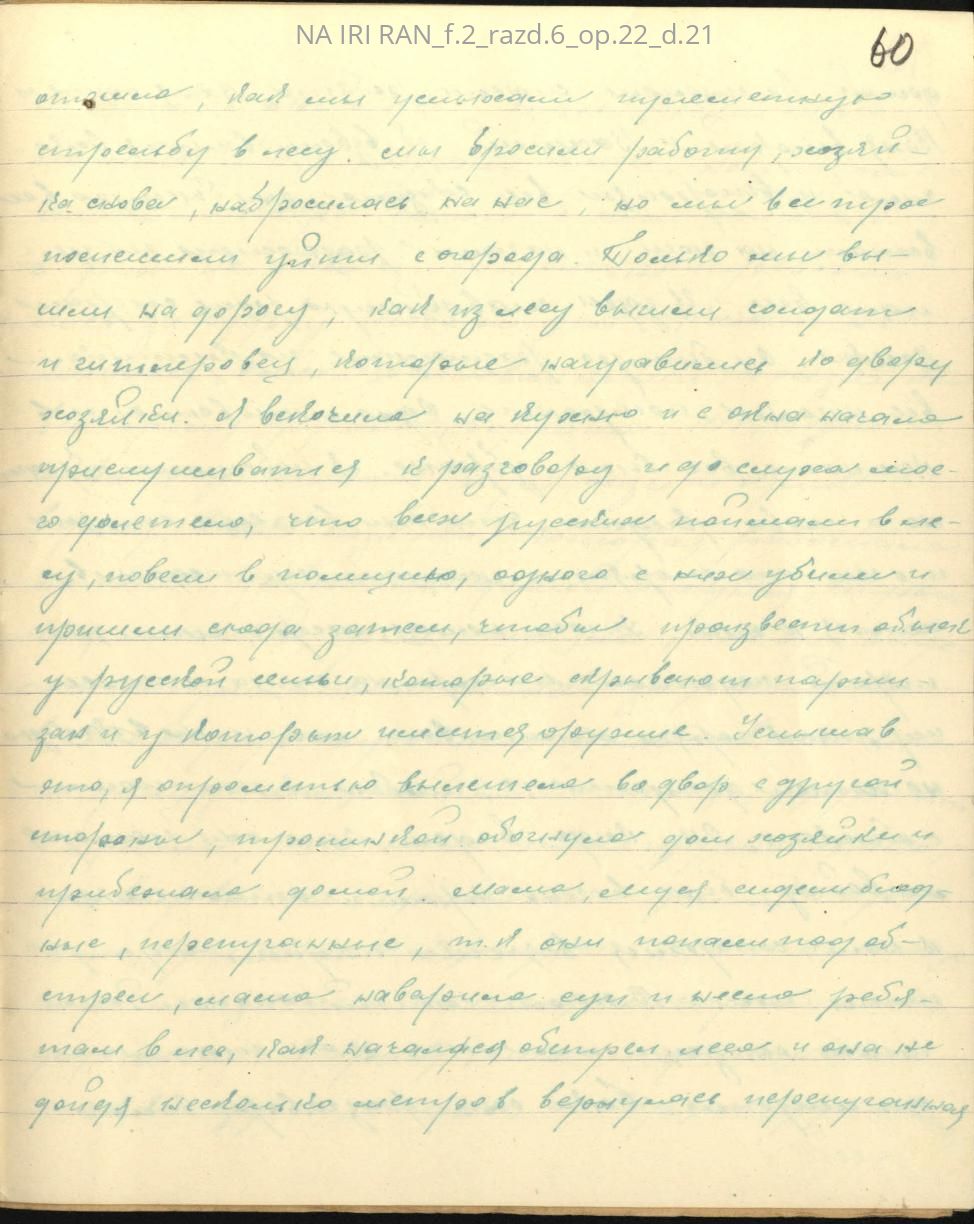 NA IRI RAN_f.2_razd.6_op.22_d.21
60
отошла, как мы услыхали пулеметную
стрельбу в лесу. Мы бросили работу, хозяй-
ка снова, набросилась на нас, но мы все трое
поспешили уйти с огорода. Только мы вы-
шли на дорогу, как из лесу вышли солдат
и гитлеровец, которые направились ко двору
хозяйки. Я вскочила на кухню и с окна начала
прислушиватся к разговору и до слуха мое-
го долетело, что всех русских поймали в ле-
су, повели в полицию, одного с них убили и
пришли сюда затем, чтобы произвести обыск
у русской семьи, которые скрывают парти-
зан и у которых имеется оружие. Услышав
это, я опрометью вылетела во двор с другой
стороны, тропинкой обогнула дом хозяйки и
прибежала домой. Мама, Муся сидели блед-
ные, перепуганные, т.к они попали под об-
стрел, мама наварила суп и несла ребя-
там в лес, как начался обстрел леса и она не
дойдя несколько метров вернулась перепуганная